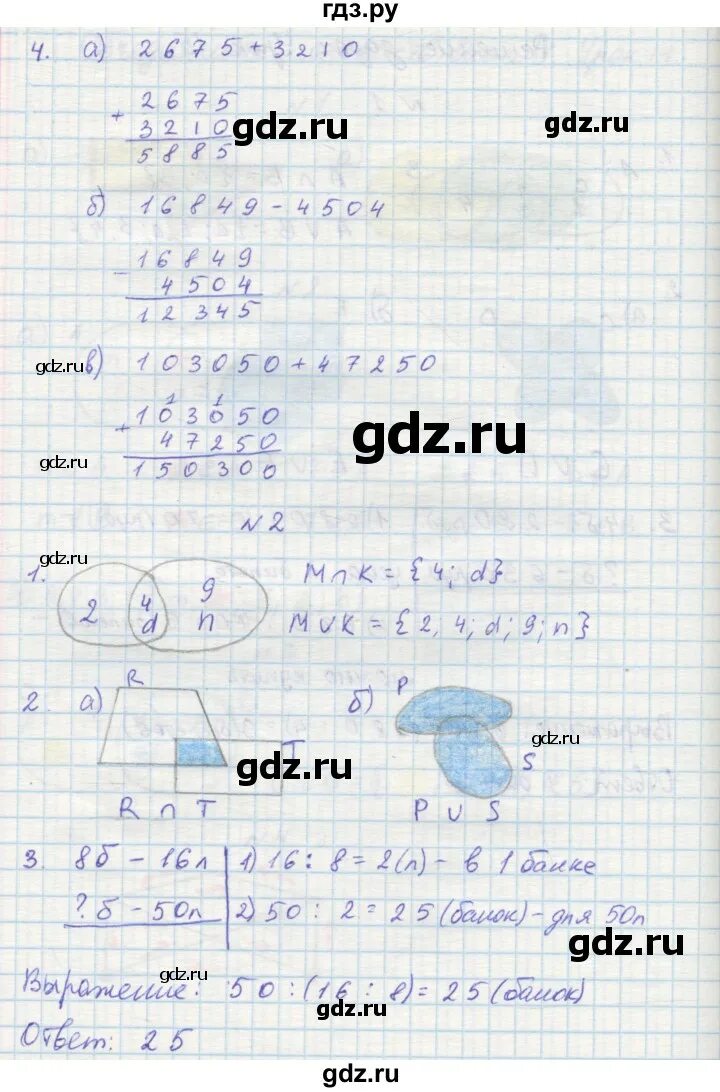 гдз.ру
4. а) 2675+3210
+ 2675
3210
5885
gdz.ru
б) 16849-4504
- 16849
4504
12345
gdz.ru
в) 103050+47250
1 1
+ 103050
47250
150300
gdz.ru
gdz.ru
N2
1.
2 4 d 9 n
M∩K = {4; d}
M∪K = {2, 4; d; 9; n}
2. а) R T
б) P S
gdz.ru
gdz.ru
R ∩ T
P ∪ S
3. 8б - 16л 1) 16 : 8 = 2(л) - в 1 банке
? б - 50л 2) 50 : 2 = 25 (банок) - для 50л
gdz.ru
gdz.ru
Выражение: 50 : (16 : 8) = 25 (банок)
Ответ: 25
gdz.ru
gdz.ru